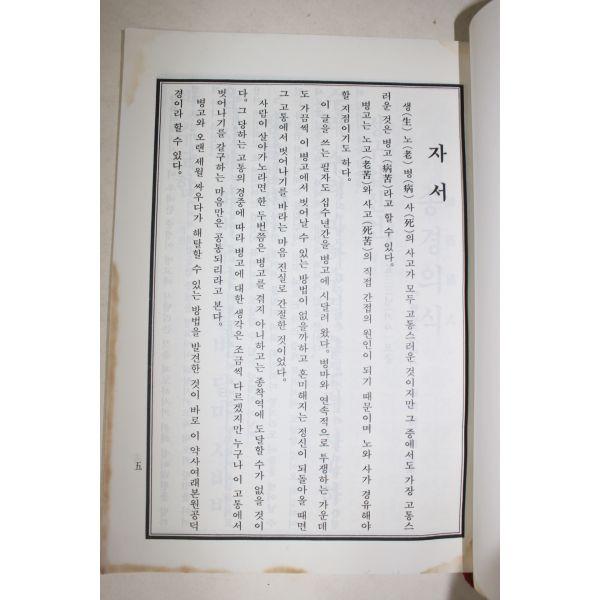 자서
생(生) 노(老) 병(病) 사(死)의 사고가 모두 고통스러운 것이지만 그 중에서도 가장 고통스
러운 것은 병고(病苦)라고 할 수 있다.
병고는 노고(老苦)와 사고(死苦)의 직접 간접의 원인이 되기 때문이며 노와 사가 경유해야
할 지점이기도 하다.
이 글을 쓰는 필자도 십수년간을 병고에 시달려 왔다. 병마와 연속적으로 투쟁하는 가운데
도 가끔씩 이 병고에서 벗어날 수 있는 방법이 없을까하고 혼미해지는 정신이 되돌아올 때면
그 고통에서 벗어나기를 바라는 마음 진실로 간절한 것이었다.
사람이 살아가노라면 한 두번쯤은 병고를 겪지 아니하고는 종착역에 도달할 수가 없을 것이
다. 그 당하는 고통의 경중에 따라 병고에 대한 생각은 조금씩 다르겠지만 누구나 이 고통에서
벗어나기를 갈구하는 마음만은 공통되리라고 본다.
병고와 오랜 세월 싸우다가 해탈할 수 있는 방법을 발견한 것이 바로 이 약사여래본원공덕
경이라 할 수 있다.
五